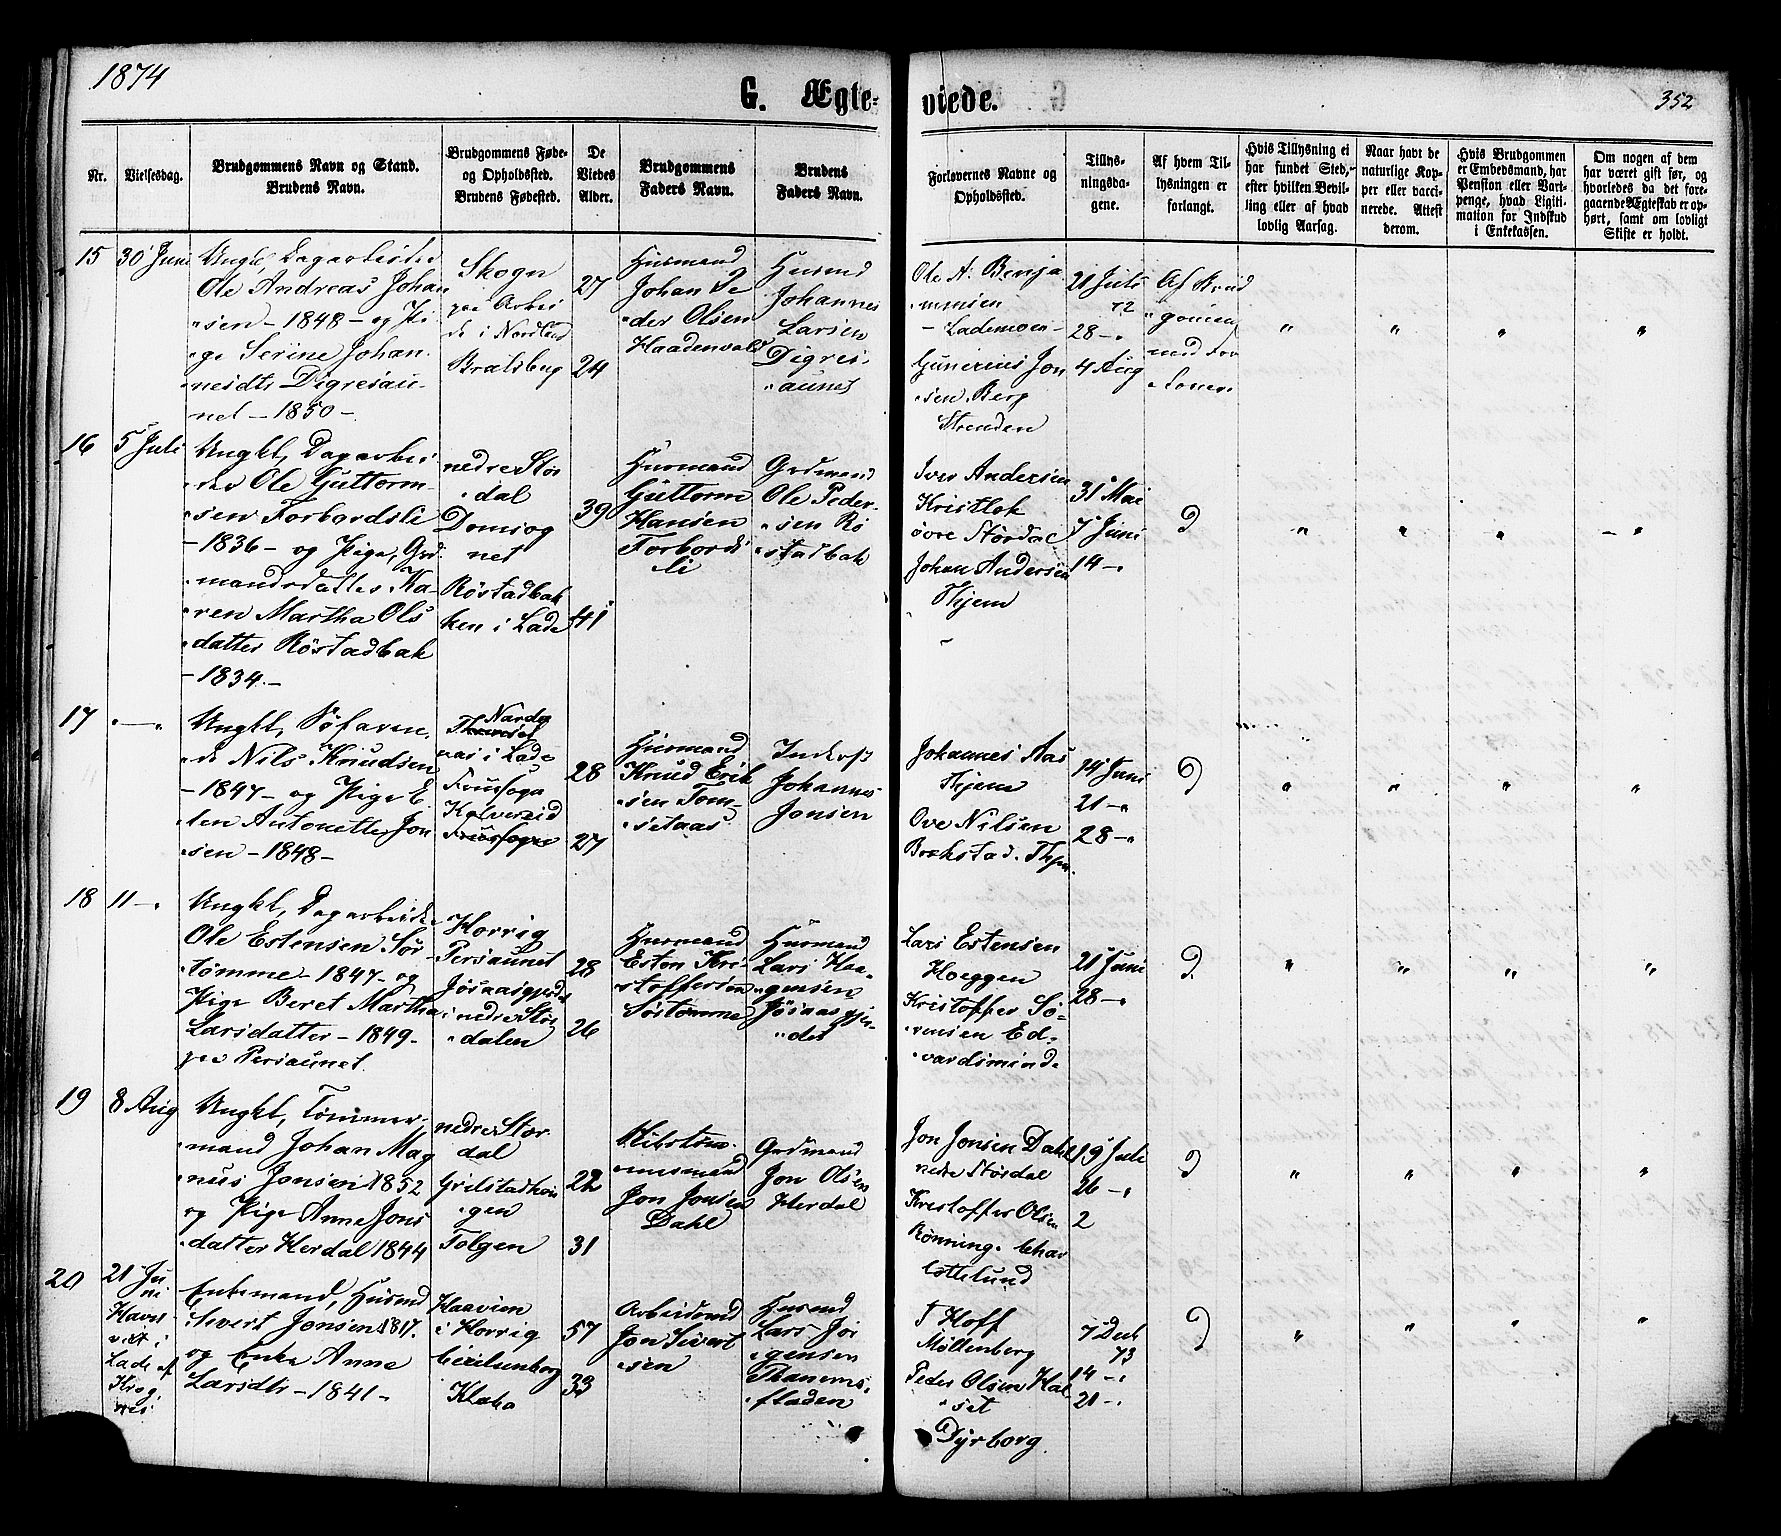 1874
352
G. Ægte-
viede.
Nr.
Vielsesdag.
Brudgommens Navn og Stand.
Brudens Navn.
Brudgommens Føde-
og Opholdssted.
Brudens Fødested.
De
Viedes
Alder.
Brudgommens
Faders Navn.
Brudens
Faders Navn.
Forlovernes Navne og
Opholdssted.
Tillys-
ningsda-
gene.
Af hvem Til-
lysningen er
forlangt.
Hvis Tillysning ei
har fundet Sted,
efter hvilken Bevil-
ling eller af hvad
lovlig Aarsag.
Naar havt de
naturlige Kop-
per eller vacci-
nerede. Attest
derom.
Hvis Brudgommen
er Embedsmand, har
Pension eller Vart-
penge, hvad Ligiti-
mation for Indskud
i Enkekassen.
Om nogen af dem
har været gift før, og
hvorledes da det fore-
gaaende Ægteskab er op-
hørt, samt om lovligt
Skifte er holdt.
15
30 Juni
Ungkl, Dagarbeider
Ole Andreas Johan
sen - 1848 - og Pi
ge Serine Johan
nesdtr Digresau
net - 1850 -
Skogn
paa Arbei
de i Nordland
Bratsberg
27
24
Husmand
Johan Pe
der Olsen
Haadenvold
Husmd
Johannes
Larsen
Digres
aunet
Ole A. Benja
minsen
- Lademoen -
Gunerius Jon
sen Berg
Strinden
21 Juli
72
28 -
4 Aug
Af Brud
gomen
med For
lover
16
5 Juli
Ungkl, Dagarbei
der Ole Guttorm
sen Forbordsli
- 1836 - og Pige, Grd
mandsdatter Ka
ren Martha Ols
datter Röstadbak
- 1834 -
nedre Stör
dal
Domsog
net
Röstadbak
ken i Lade
39
41
Husmand
Guttorm
Hansen
Forbords
li
Grdmand
Ole Peder
sen Rö
stadbak
Iver Andersen
Kristlok
övre Stördal
Johan Andersen
Thjem
31 Mai
7 Juni
14 -
D
17
Ungkl, Söfaren
de Nils Knudsen
- 1847 - og Pige E
len Antonette Jon
sen - 1848 -
aas i Lade
Fruesogn
Kolvereid
28
27
Husmand
Knud Erik
sen Tom
setaas
Inderst
Johannes
Jonsen
Johannes Aas
Thjem
Ove Nilsen
Bakstad. Thjem
14 Juni
21 -
28 -
D
18
11 -
Ungkl, Dagarbeider
Ole Estensen Sör
tömme - 1847 - og
Pige Beret Martha
Larsdatter - 1849 -
paa Persaunet.
Horrig
Persaunet
Jösaasgjerdet
i nedre Stör
dalen
28
26
Husmand
Esten Kri
stoffersen
Sörtömme
Husmand
Lars Haa
gensen
Jösaasgjer
det
Lars Estensen
Hoeggen
Kristoffer Sö
rensen Ed
vardsminde
21 Juni
28 -
D.
19
8 Aug
Ungkl, Tömmer
mand Johan Mag
nus Jonsen 1852
og Pige Anne Jons
datter Herdal 1844
nedre Stör
dal
Grilstadhau
gen
Tolgen
22
31
Jon Jonsen
Dahl
Grdmand
Jon Olsen
Herdal
Jon Jonsen Dahl
nedre Stördal
Kristoffer Olsen
Rönning. Char
lottelund
19 Juli
26 -
2
D
20
21 Ju
ni
Lade af
Enkemand, Husmd
Sivert Jonsen 1817.
og Enke Anne
Larsdtr - 1841 -
Haavien
i Horrig
Cecilienborg
Klæbo
57
33
Arbeidsmd
Jon Sivert
sen
Husmd
Lars Jör
gensen
Thanems
fladen
T Hoff
Möllenberg
Peder Olsen Hal
set
Dyrborg.
7 Dec
73
14 -
21 -
D